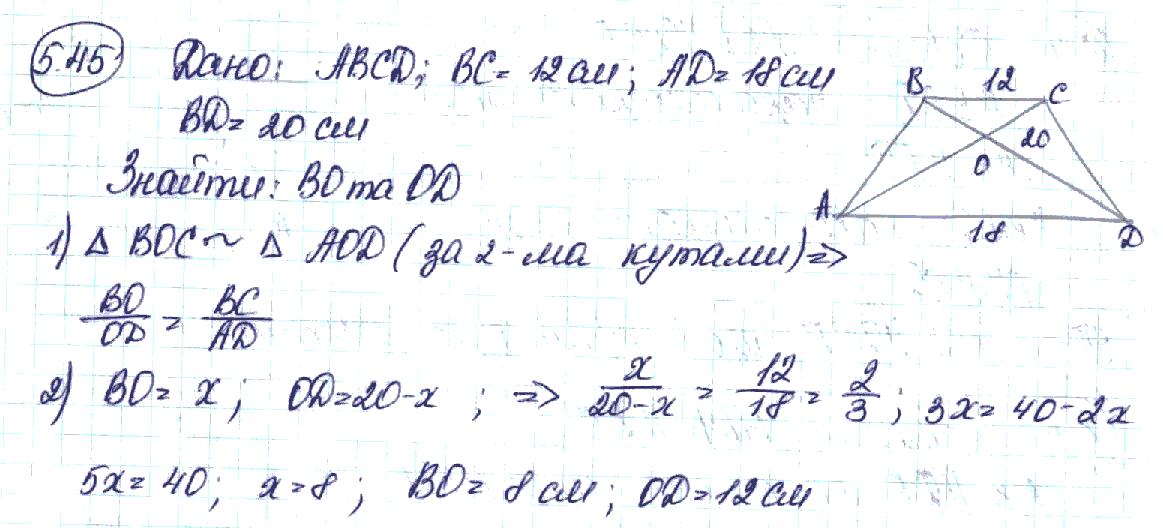 5.45 Дано: ABCD; BC = 12 см; AD = 18 см
BD = 20 см
Знайти: BO та OD
B 12 C
20
O
A 18 D
1) Δ BOC ~ Δ AOD (за 2-ма кутами) =>
BO/OD = BC/AD
2) BO = x; OD = 20-x ; => x/(20-x) = 12/18 = 2/3; 3x = 40-2x
5x = 40; x = 8; BO = 8 см; OD = 12 см